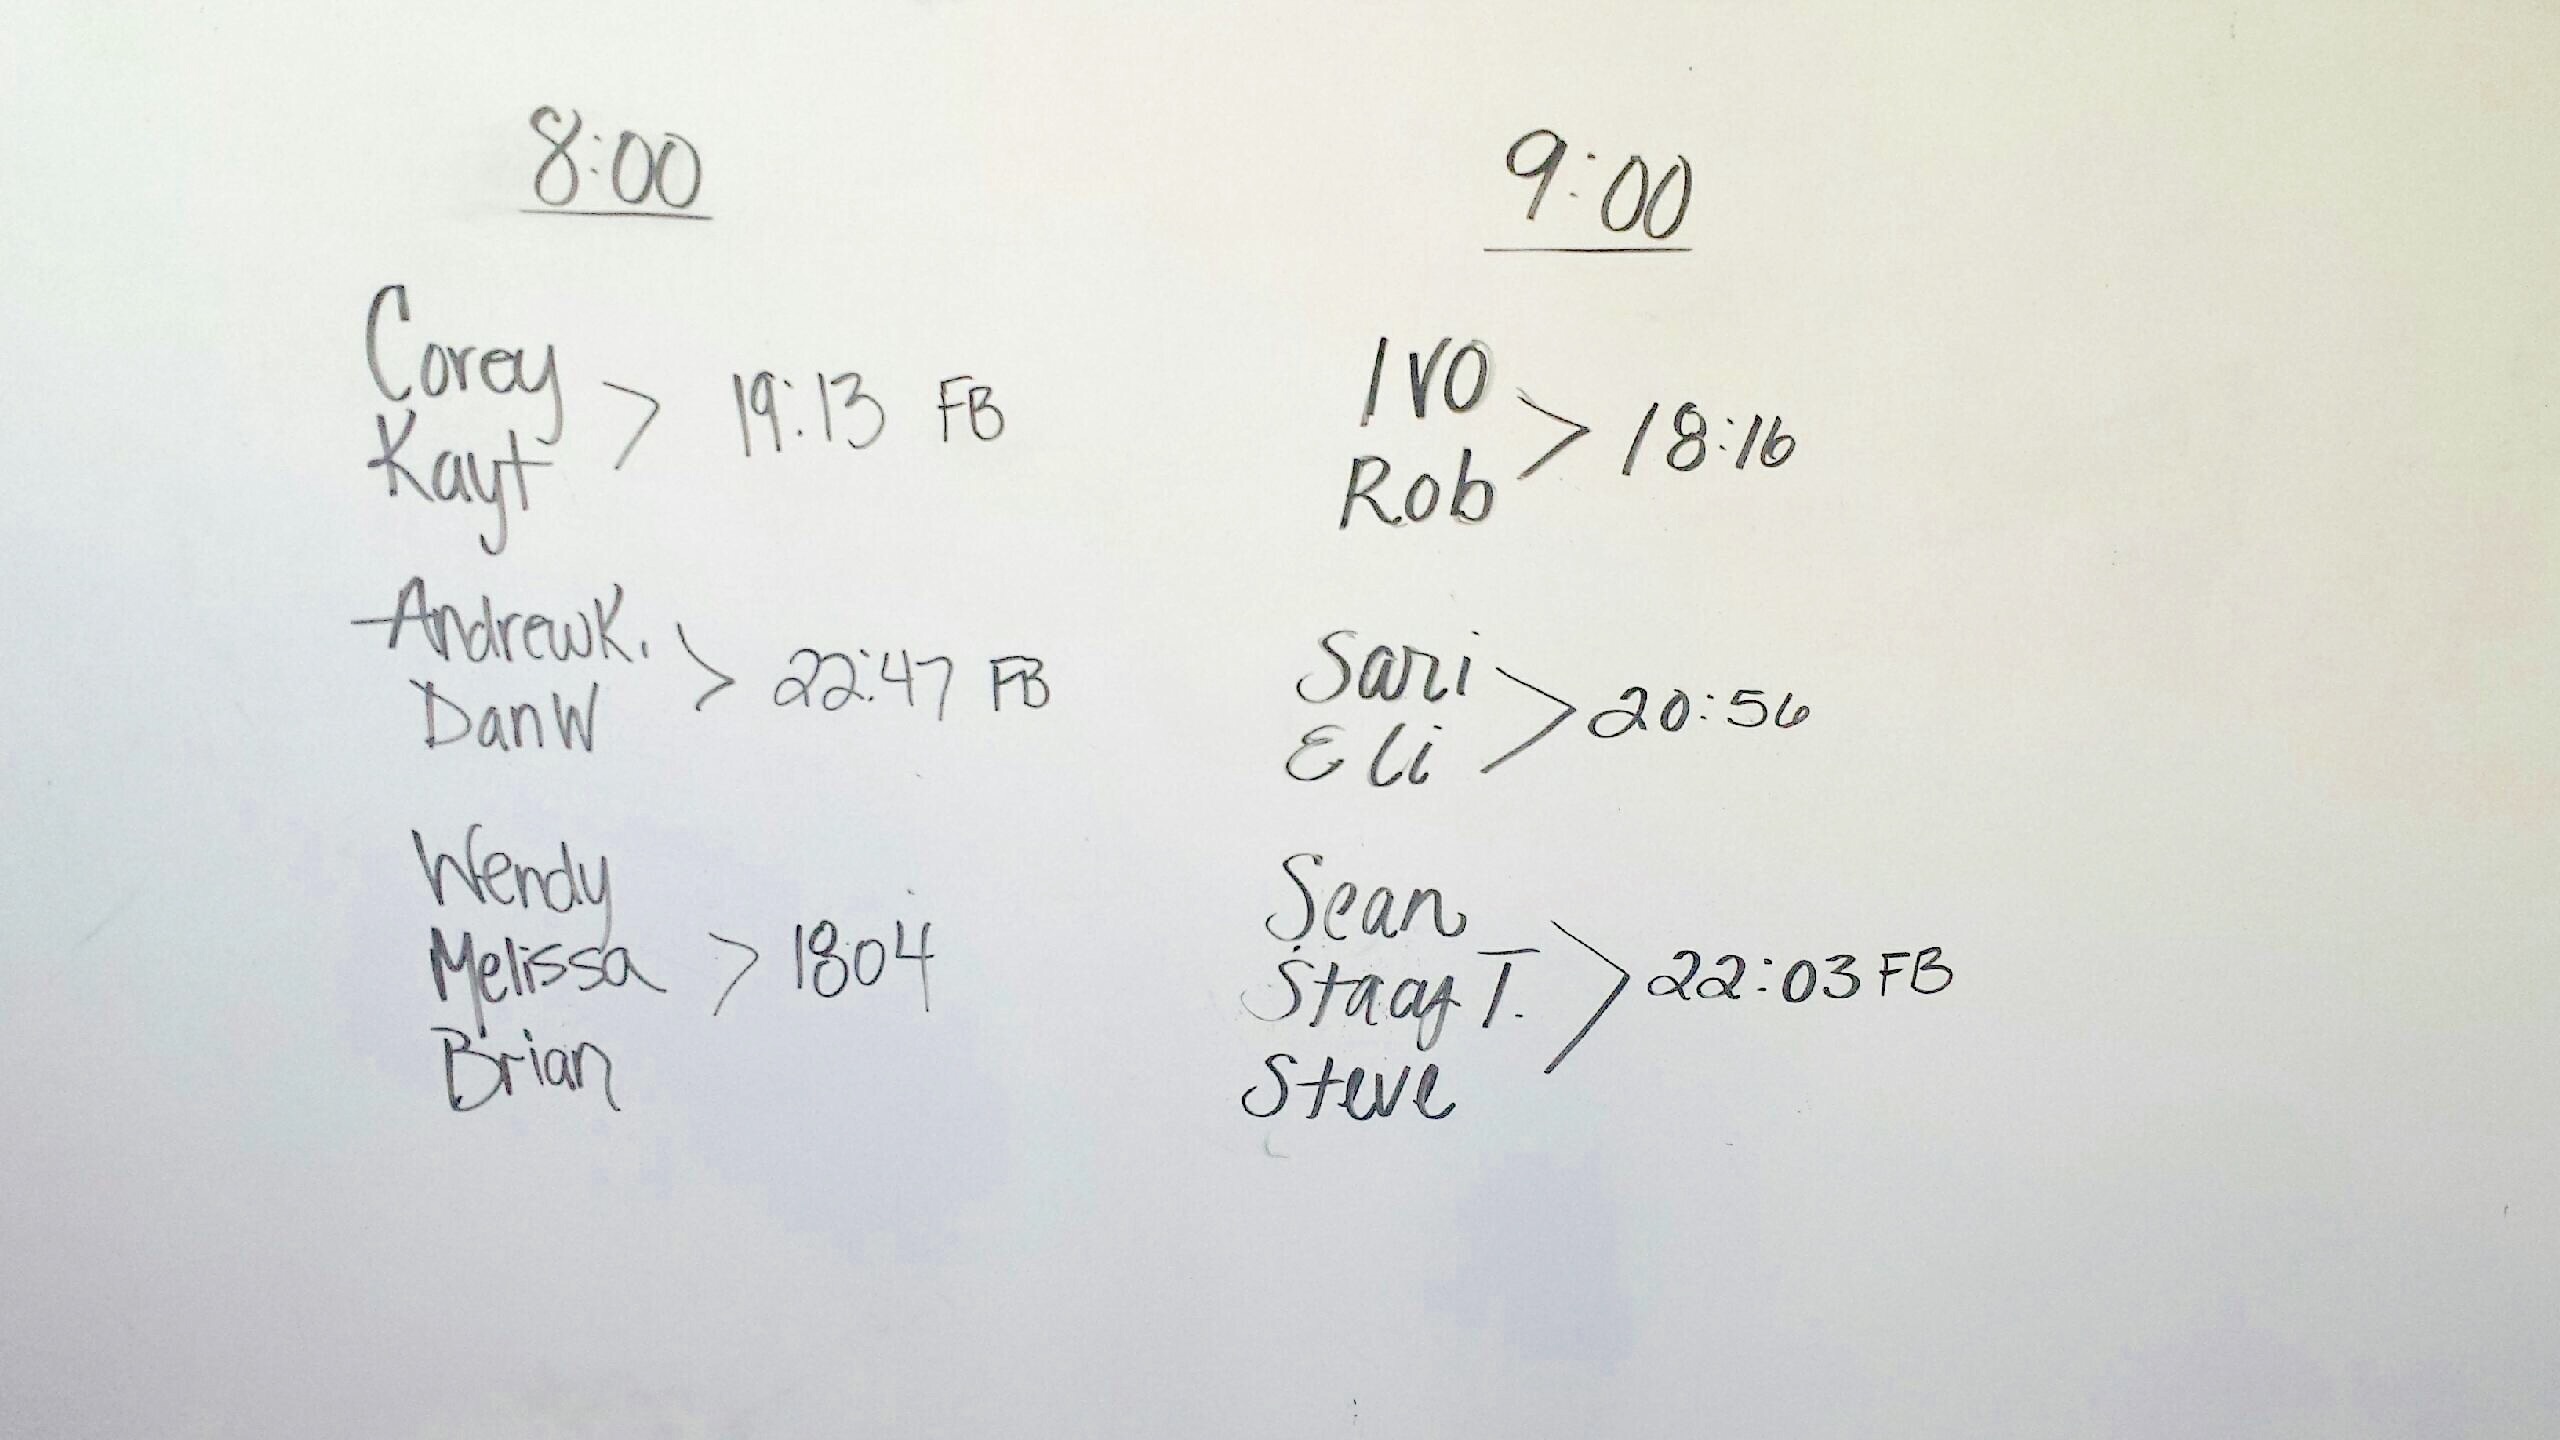 8:00
Corey
Kayt
> 19:13 FB
Andrew K.
Dan W
> 22:47 FB
Wendy
Melissa
Brian
> 18:04
9:00
Ivo
Rob
> 18:16
Sari
Eli
> 20:56
Sean
Stacy T.
Steve
> 22:03 FB